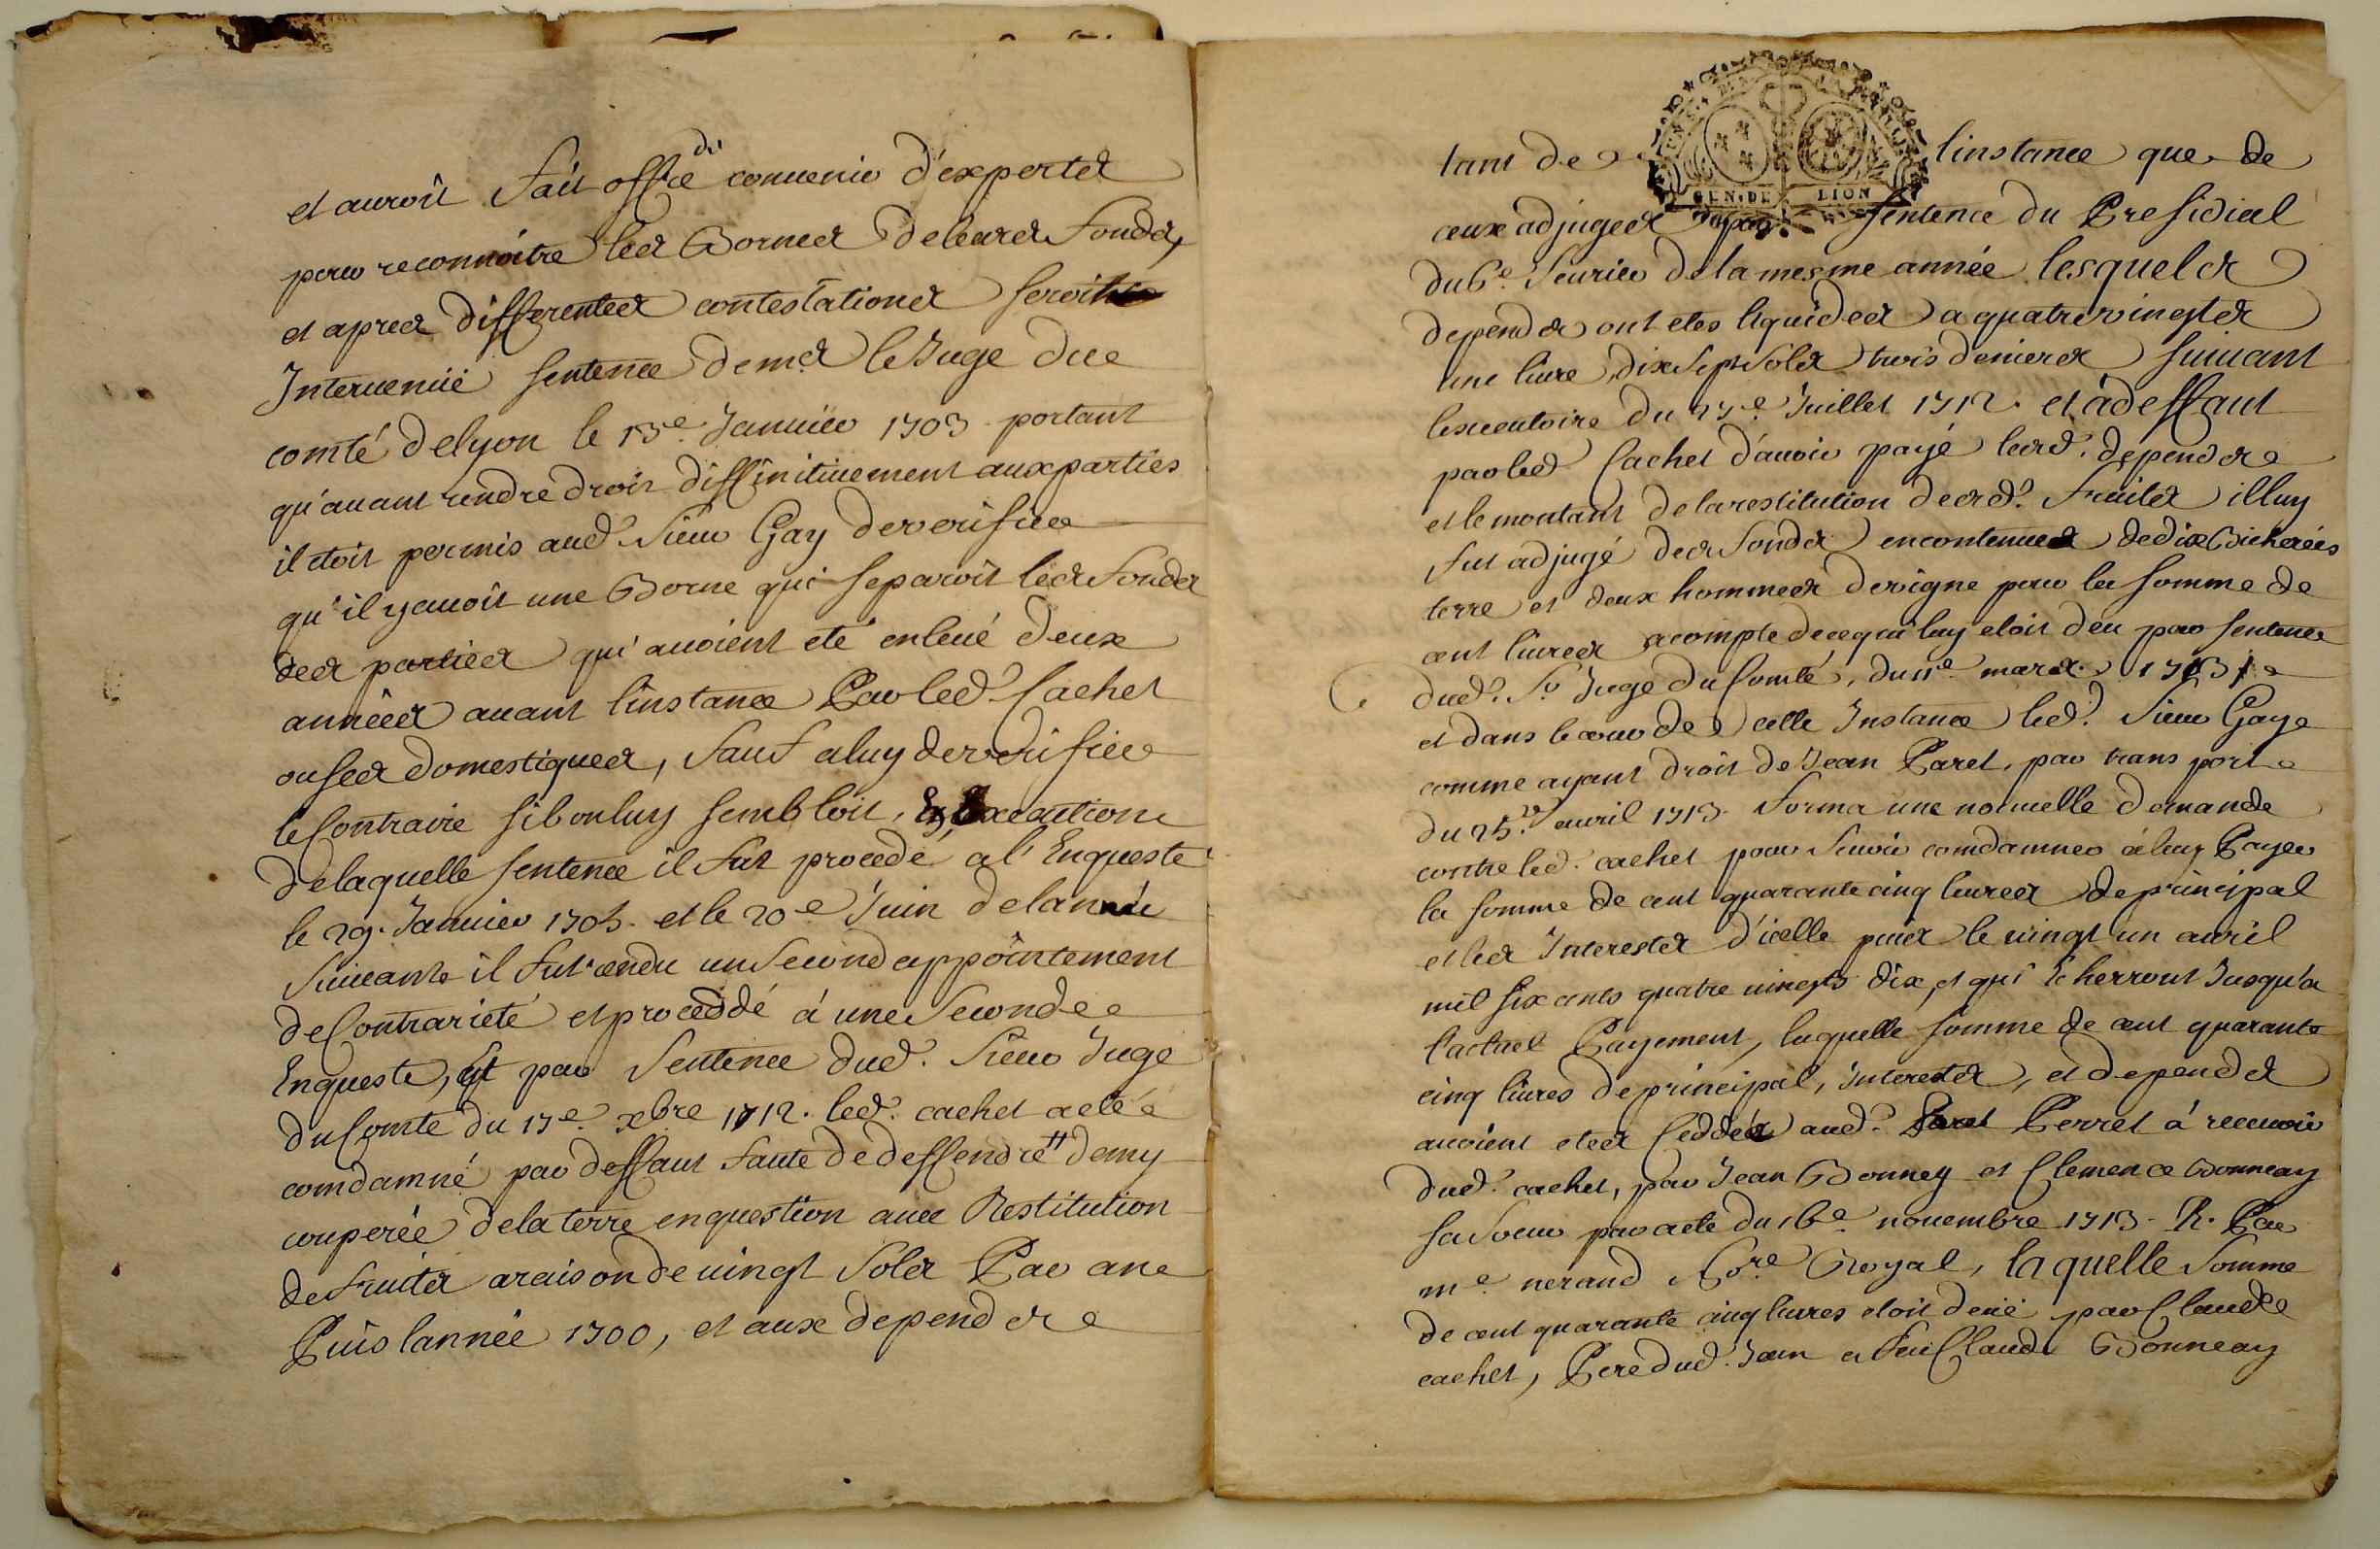 et auroit fait offre de conuenir d'expertes
pour reconnoitre les Bornes deleurs fonds,
et apres differentes contestationes seroit
Interuenüe sentence de mr. le Juge du
comté delyon le 13e. Januier 1703 portant
qu'auant rendre droit diffinitiuement aux parties
il etoit permis aud. Sieur Gay deverifier
qu'il yauoit une Borne qui separoit les fonds
des parties qui auoient eté enleué deux
années auant linstance Par led. Cachet
ouses domestiques, sauf aluy deverifier
leContraire sibonluy sembloit, En Execution
delaquelle sentence il fut procedé al'Enqueste
le 29. Januier 1705. et le 20e Juin delannée
Suiuante il fut rendu un Second appointement
deContrarieté et proceddé à une Seconde
Enqueste, Et par Sentence dud. Sieur Juge
duComte du 17e. xbre 1712. led. cachet a eté
comdamné par deffaut faute de deffendre demy
couperée delaterre enquestion auec Restitution
de fruits araison de uingt Sols Par an
Puis lannée 1700, et aux depends
tant de linstance que de
GEN. DE LION
ceux adjuges par sentence du Presidial
du 6e. feurier de la mesme année lesquels
depends ont etes liquidees a quatrevingts
une liure, dix sept sols trois deniers suiuant
lexecutoire du 27e. Juillet 1712. et àdeffaut
par led. Cachet d'auoir payé lesd. depends
et le montant de la restitution desd. fruits illuy
fut adjugé des fonds encontenue de dix Bicherées
terre et deux hommes devigne pour la somme de
cent liures acompte decequi luy etoit deu par sentence
dud. Sr. Juge du Comté, du 11e. mars 1713
et dans le cour de celle Instance led. Sieur Gay
comme ayant droit de Jean Paret, par transport
du 25e. auril 1713. forma une nouuelle demande
contre led. cachet pour Seuoir comdamner àluy Payer
la somme de cent quarante cinq liures de principal
et les Interests d'icelle puis le uingt un auril
mil six cents quatre uingts dix, et qui Echerront Jusqu'a
lactuel Payement, laquelle somme de cent quarante
cinq liures de principal, interests, et depends
auoient etes Ceddés aud. Perret à receuoir
dud. cachet, par Jean Bonney et Clemence Bonneay
sa soeur par acte du 16e. nouembre 1713. R. Par
me. nerand Nore. Royal, laquelle Somme
de cent quarante cinq liures etoit deüe par Claude
cachet, Pere dud. Jean a feu Claude Bonneay